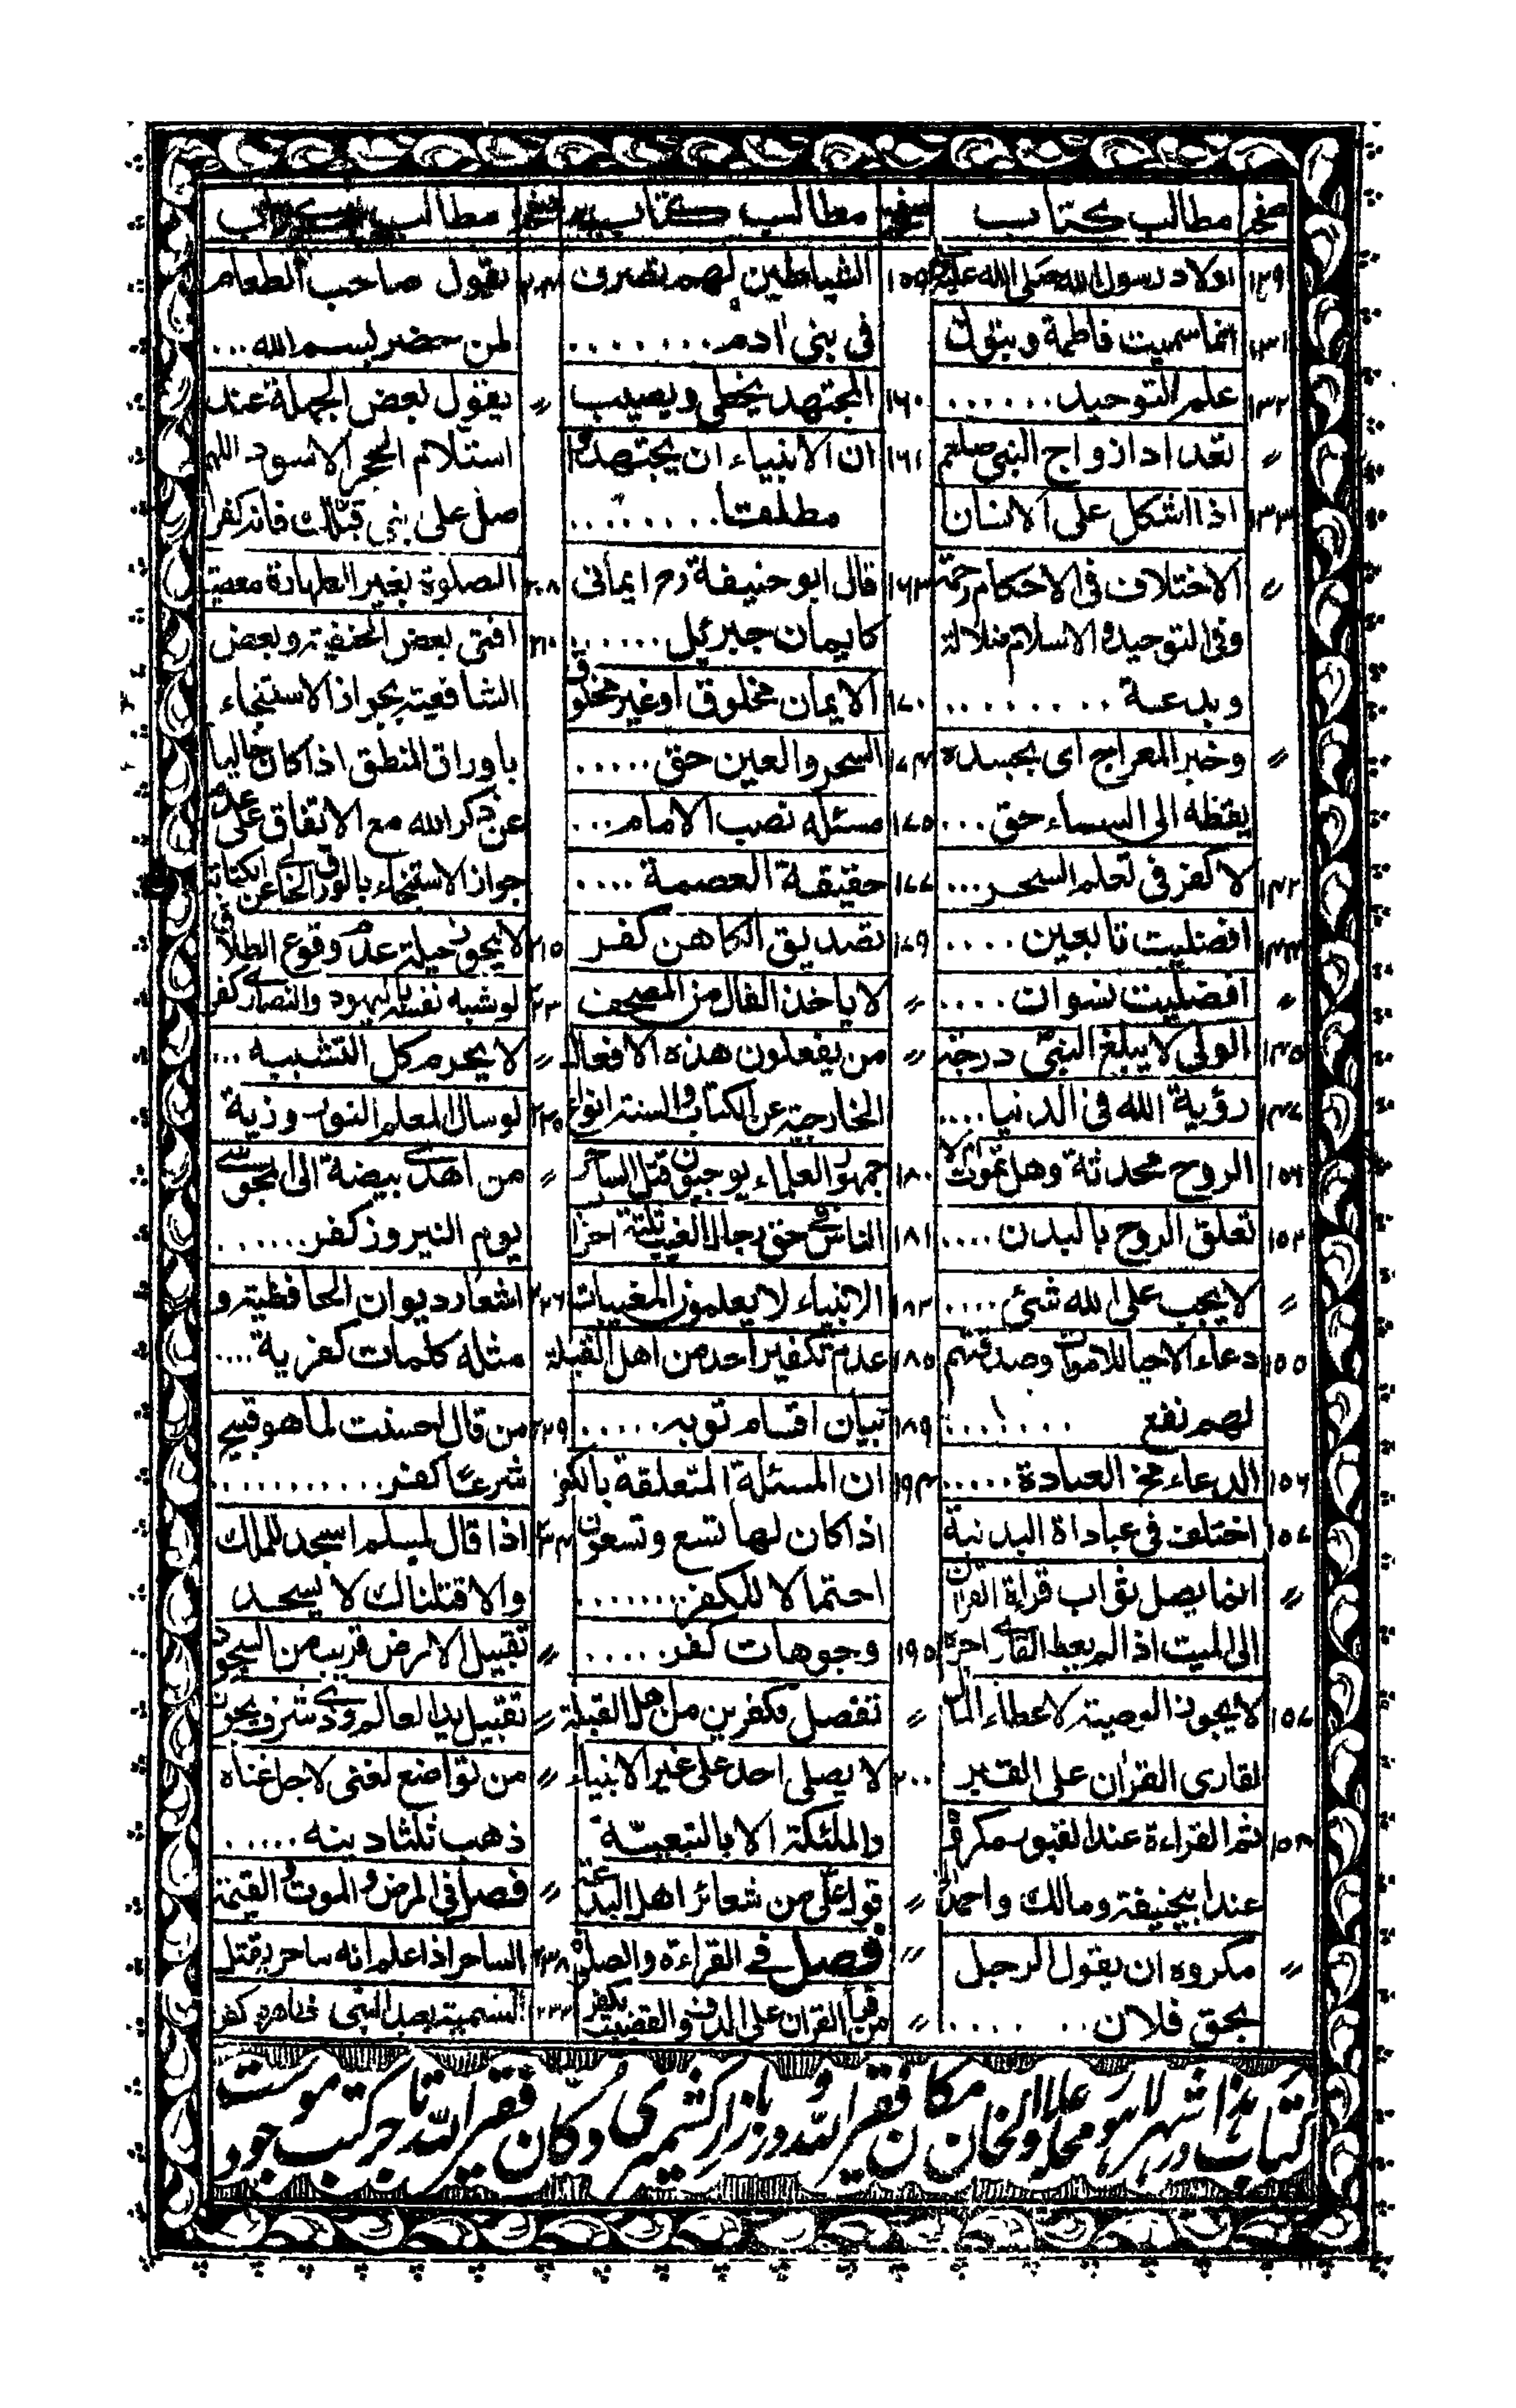 صفحہ مطالب کتاب
١٢٩ اولاد رسول الله صلى الله عليه
١٣١ انما سميت فاطمة وبتول
١٣٢ علم التوحيد......
〃 تعداد ازواج النبى صلعم
١٣٣ اذا اشكل على الانسان
〃 الاختلاف فى الاحكام رحمة
وفى التوحيد والاسلام ضلالة
وبدعة .........
〃 وخبر المعراج اى بجسده
يقظة الى السماء حق...
١٤٢ لا كفر فى تعلم السحر...
١٤٤ افضليت تابعين....
〃 افضليت نسوان....
١٤٥ الولى لا يبلغ النبى درجة
١٤٧ رؤية الله فى الدنيا....
١٥٢ الروح محدثة وهل تموت ام لا
١٥٤ تعلق الروح بالبدن....
〃 لا يجب على الله شئ....
١٥٥ دعاء الاحيا للاموات وصدقتهم
لهم نفع ......
١٥٦ الدعاء مخ العبادة.....
١٥٧ اختلف فى عباداة البدنية
〃 انما يصل ثواب قراة القران
الى الميت اذا لم يعط القارى اجرة
١٥٧ لا يجوز الوصية لاعطاء المال
لقارى القران على القبر
١٥٨ ثم القراءة عند القبور مكروه
عند ابيحنيفة ومالك واحمد
〃 مكروه ان يقول الرجل
بحق فلان......
صفحہ مطالب کتاب
١٥٩ الشياطين لهم تصرف
فى بنى ادم........
١٦٠ المجتهد يخطى ويصيب
١٦١ ان الانبياء ان يجتهدوا
مطلقا........
١٦٣ قال ابو حنيفة رح ايمانى
كايمان جبرئيل......
١٧٠ الايمان مخلوق او غير مخلوق
١٧٤ السحر والعين حق.....
١٧٥ مسئله نصب الامام...
١٧٧ حقيقة العصمة....
١٧٩ تصديق الكاهن كفر
〃 لا ياخذ الفال من المصحف
〃 من يفعلون هذه الافعال
الخارجة عن الكتاب والسنة انواع
١٨٠ جمهور العلماء يوجبون قتل الساحر
١٨١ الناس فى حق رجال الغيب ثلثة احزا
١٨٣ الانبياء لا يعلمون المغيبات
١٨٥ عدم تكفير احد من اهل القبلة
١٨٩ بيان اقسام توبه......
١٩٤ ان المسئلة المتعلقة بالكفر
اذا كان لها تسع وتسعون
احتمالا للكفر.......
١٩٥ وجوهات كفر.....
〃 تفصل مكفرين من اهل القبلة
٢٠٠ لا يصلى احد على غير الانبياء
والملئكة الا بالتبعية
〃 قول على من شعائر اهل البدعة
〃 فصل فى القراءة والصلوة
〃 من قرأ القران على الدف والقضيب يكفر
صفحہ مطالب
٢٠٤ يقول صاحب الطعام
لمن حضر بسم الله...
〃 يقول بعض الجهلة عند
استلام الحجر الاسود اللهم
صل على نبى قبلك فانه كفر
٢٠٨ الصلوة بغير الطهارة معصية
٢١٠ افتى بعض الحنفية وبعض
الشافعية بجواز الاستنجاء
باوراق المنطق اذا كان خاليا
عن ذكر الله مع الاتفاق على عدم
جواز الاستنجاء بالورق الخالى عن الكتابة
٢١٥ لا يجوز حيلة عدم وقوع الطلاق
٢٢٠ لو شبه نفسه باليهود والنصارى كفر
〃 لا يحرم كل التشبيه...
٢٢٥ لو سال المعلم النوروزية
〃 من اهدى بيضة الى المجوسى
يوم النيروز كفر......
٢٢٦ اشعار ديوان الحافظية و
مثله كلمات كفرية....
٢٢٩ من قال احسنت لما هو قبيح
شرعا كفر...........
٢٣٤ اذا قال لمسلم اسجد للملك
والا قتلناك لا يسجد
〃 تقبيل الارض قريب من السجود
〃 تقبيل يد العالم وذى شرف يجوز
〃 من تواضع لغنى لاجل غناه
ذهب ثلثا دينه.....
〃 فصل فى المرض والموت والقيمة
٢٣٨ الساحر اذا علم انه ساحر يقتل
٢٣٣ التسمية بعبد النبى ظاهره كفر
کتاب ہذا شہر لاہور در محلہ ولخان مکان فقیر اللہ و در بازار کشمیری دکان فقیر اللہ تاجر کتب موجود ست